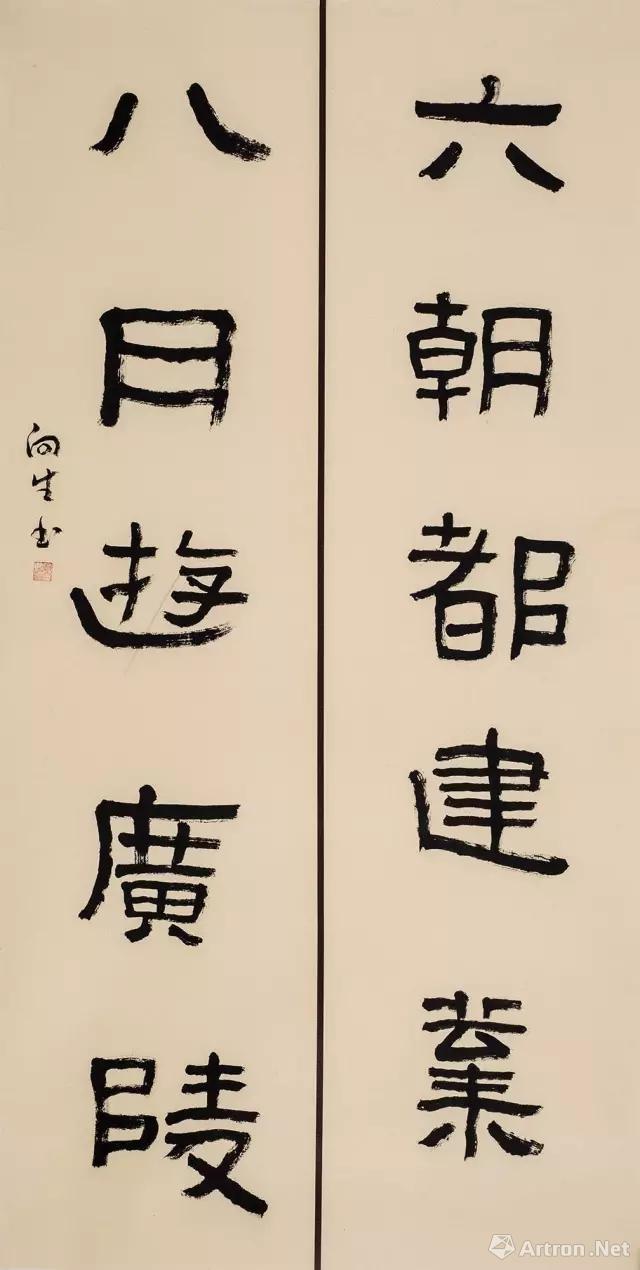 六朝都建業
八月遊廣陵
向生书
Artron.Net